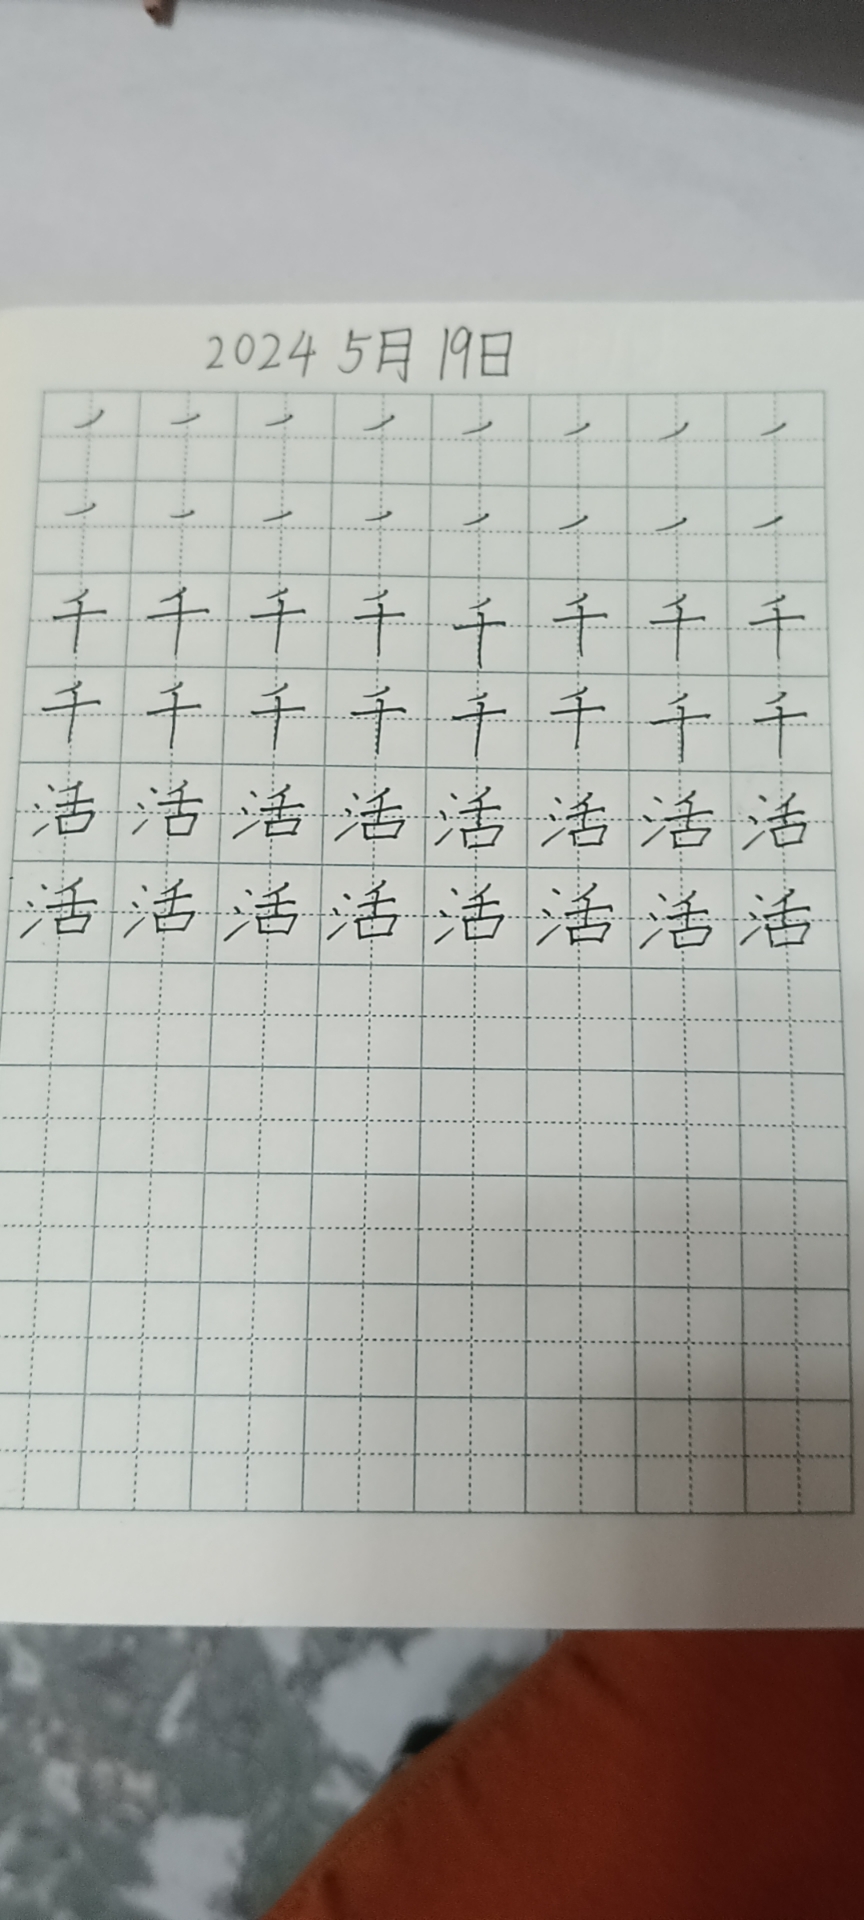 2024 5月 19日
㇒ ㇒ ㇒ ㇒ ㇒ ㇒ ㇒ ㇒
㇒ ㇒ ㇒ ㇒ ㇒ ㇒ ㇒ ㇒
千 千 千 千 千 千 千 千
千 千 千 千 千 千 千 千
活 活 活 活 活 活 活 活
活 活 活 活 活 活 活 活